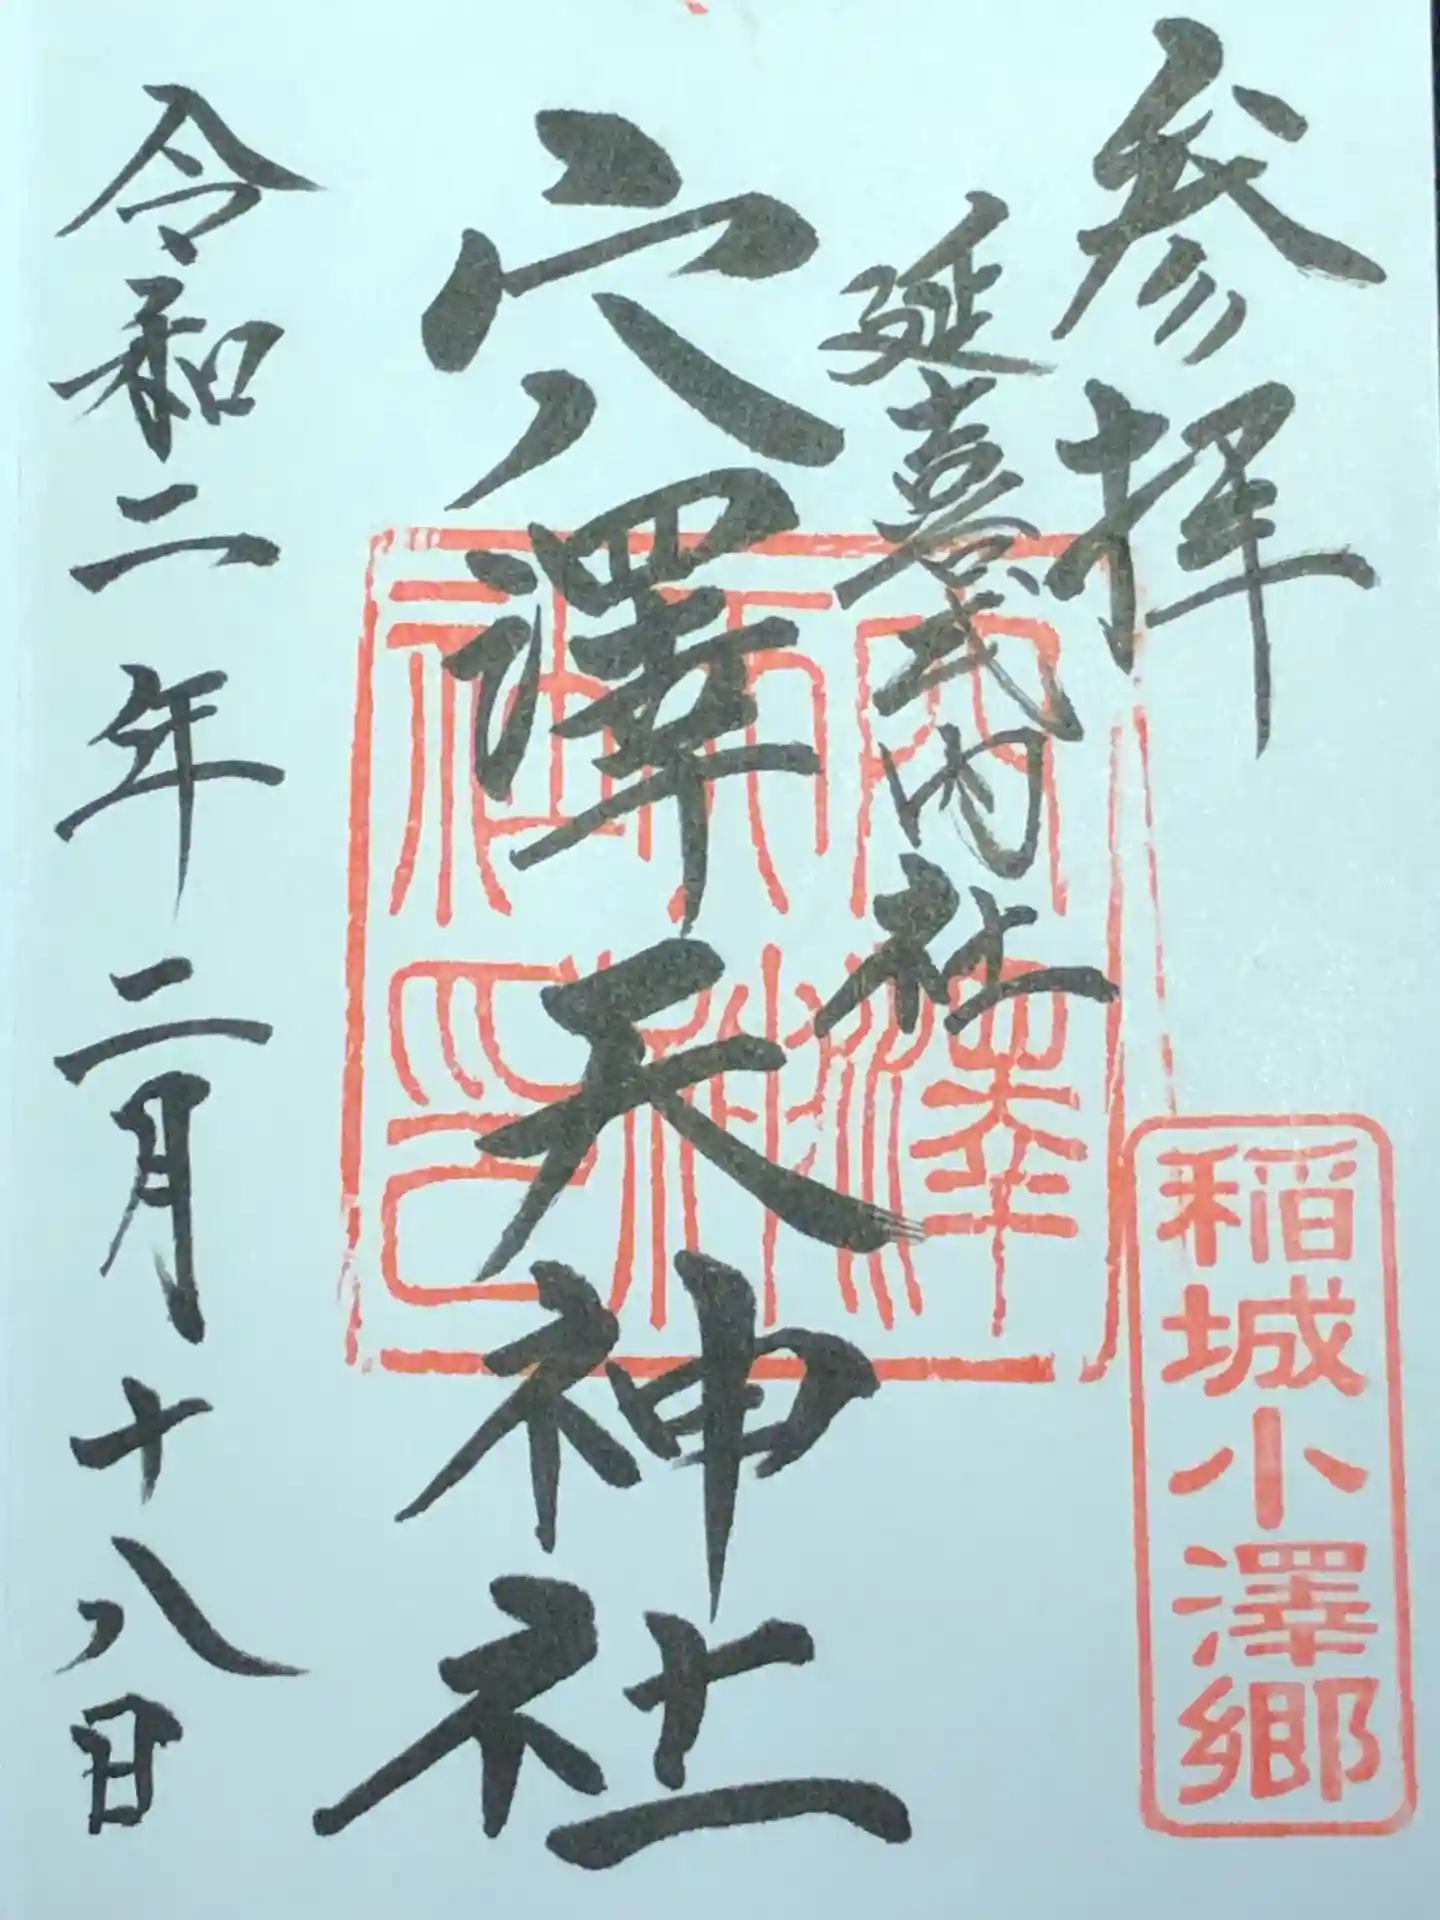 参拝
延喜式内社
穴澤天神社
令和二年二月十八日
稲城小澤郷
穴澤
天神
社印